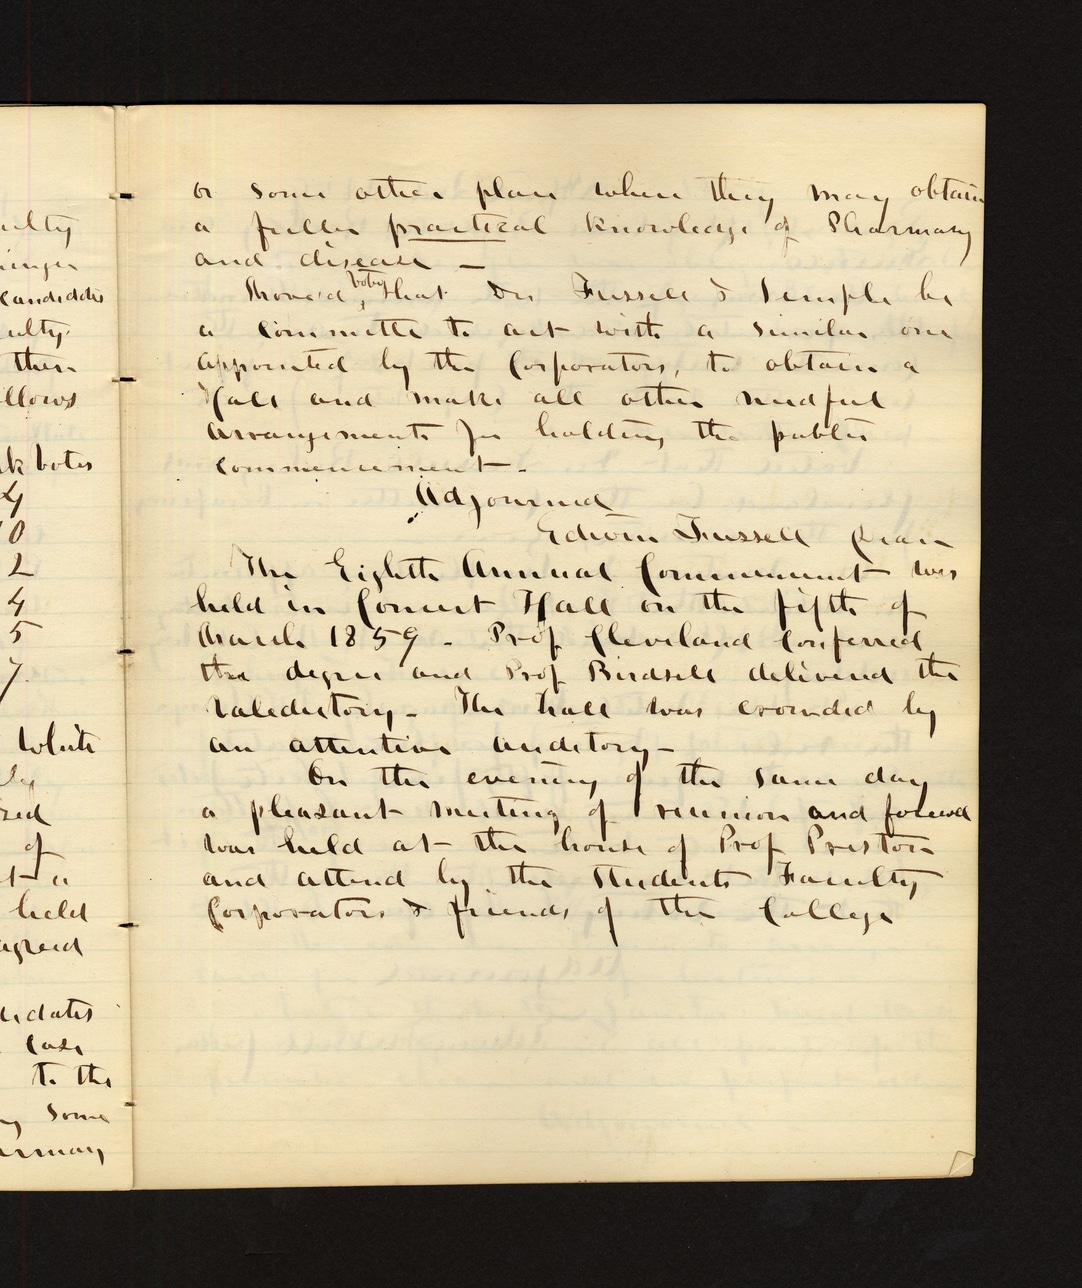 ulty
inger
candidates
ulty
then
llows
k votes
4
10
2
4
5
7.
White
ly
sed
of
t a
held
agreed
didates
case
to the
y some
armacy
or some other plan where they may obtain
a fuller practical knowledge of Pharmacy
and disease —
Moved, voted, that Drs Fussell & Temple be
a Committee to act with a similar one
appointed by the Corporators, to obtain a
Hall and make all other needful
arrangements for holding the public
commencement.
Adjourned
Edwin Fussell Dean
The Eighth Annual Commencement was
held in Concert Hall on the fifth of
March 1859. Prof Cleveland Conferred
the degree and Prof Birdsell delivered the
Valedictory. The hall was crowded by
an attentive auditory —
On the evening of the same day
a pleasant meeting of reunion and
was held at the house of Prof Preston
and attend by the Students Faculty
Corporators & friends of the College